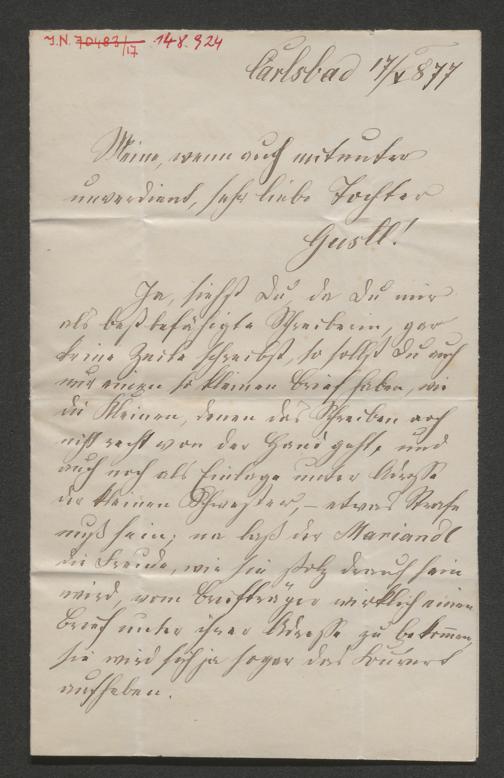 J.N. 70483/17 148.924
Carlsbad 17/V 877
Meine, wenn auch mitunter
unverdient, sehr liebe Tochter
Gustl!
Ja, siehst Du, da Du mir
als bestbefähigte Schreiberin, gar
keine Zeile schreibst, so sollst Du auch
nur einen so kleinen Brief haben, wie
die Kleinen, denen das Schreiben noch
nicht recht von der Hand geht, und
auch noch als Einlage unter Adresse
der kleinen Schwester, – etwas Strafe
muß sein; na laß der Mariandl
die Freude, wie sie stolz drauf sein
wird, vom Briefträger wirklich einen
Brief unter ihrer Adresse zu bekommen,
sie wird sich ja sogar das Couvert
aufheben.